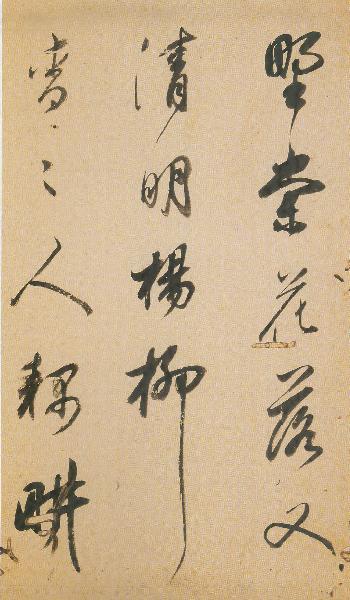 野棠花落又
清明楊柳
〻人耦畊